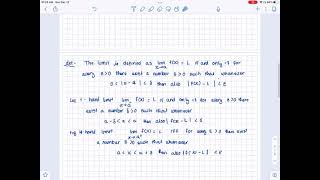 Def - The limit is defined as lim f(x) = L if and only if for
x→a
every ε>0 there exist a number δ>0 such that whenever
0 < |x - a| < δ then also |f(x) - L| < ε
Left-hand limit lim f(x) = L if and only if for every ε>0 there
x→a⁻
exist a number δ>0 such that whenever
a - δ < x < a then also |f(x) - L| < ε
Right-hand limit lim f(x) = L iff for every ε>0 there exist
x→a⁺
a number δ>0 such that whenever
a < x < a + δ then also |f(x) - L| < ε